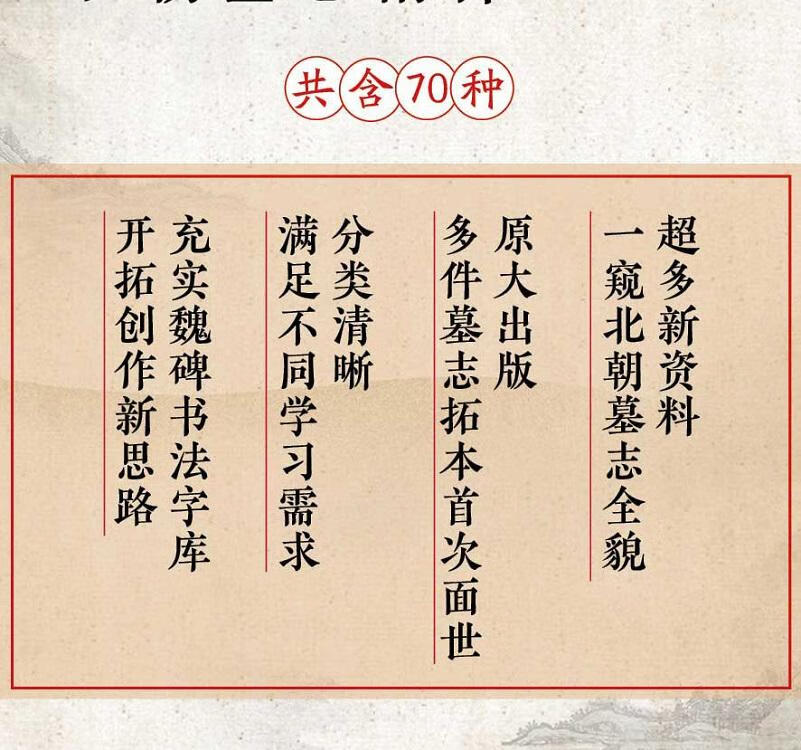 共含70种
超多新资料
一窥北朝墓志全貌
原大出版
多件墓志拓本首次面世
分类清晰
满足不同学习需求
充实魏碑书法字库
开拓创作新思路